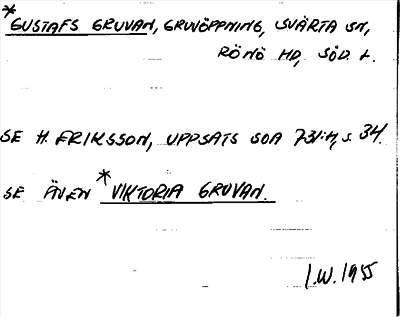 *GUSTAFS GRUVAN, GRUVÖPPNING, SVÄRTA SN,
RÖNÖ HD, SÖD. L.
SE H. ERIKSSON, UPPSATS SOA 731:H, s. 34.
SE ÄVEN *VIKTORIA GRUVAN.
I.W. 1955